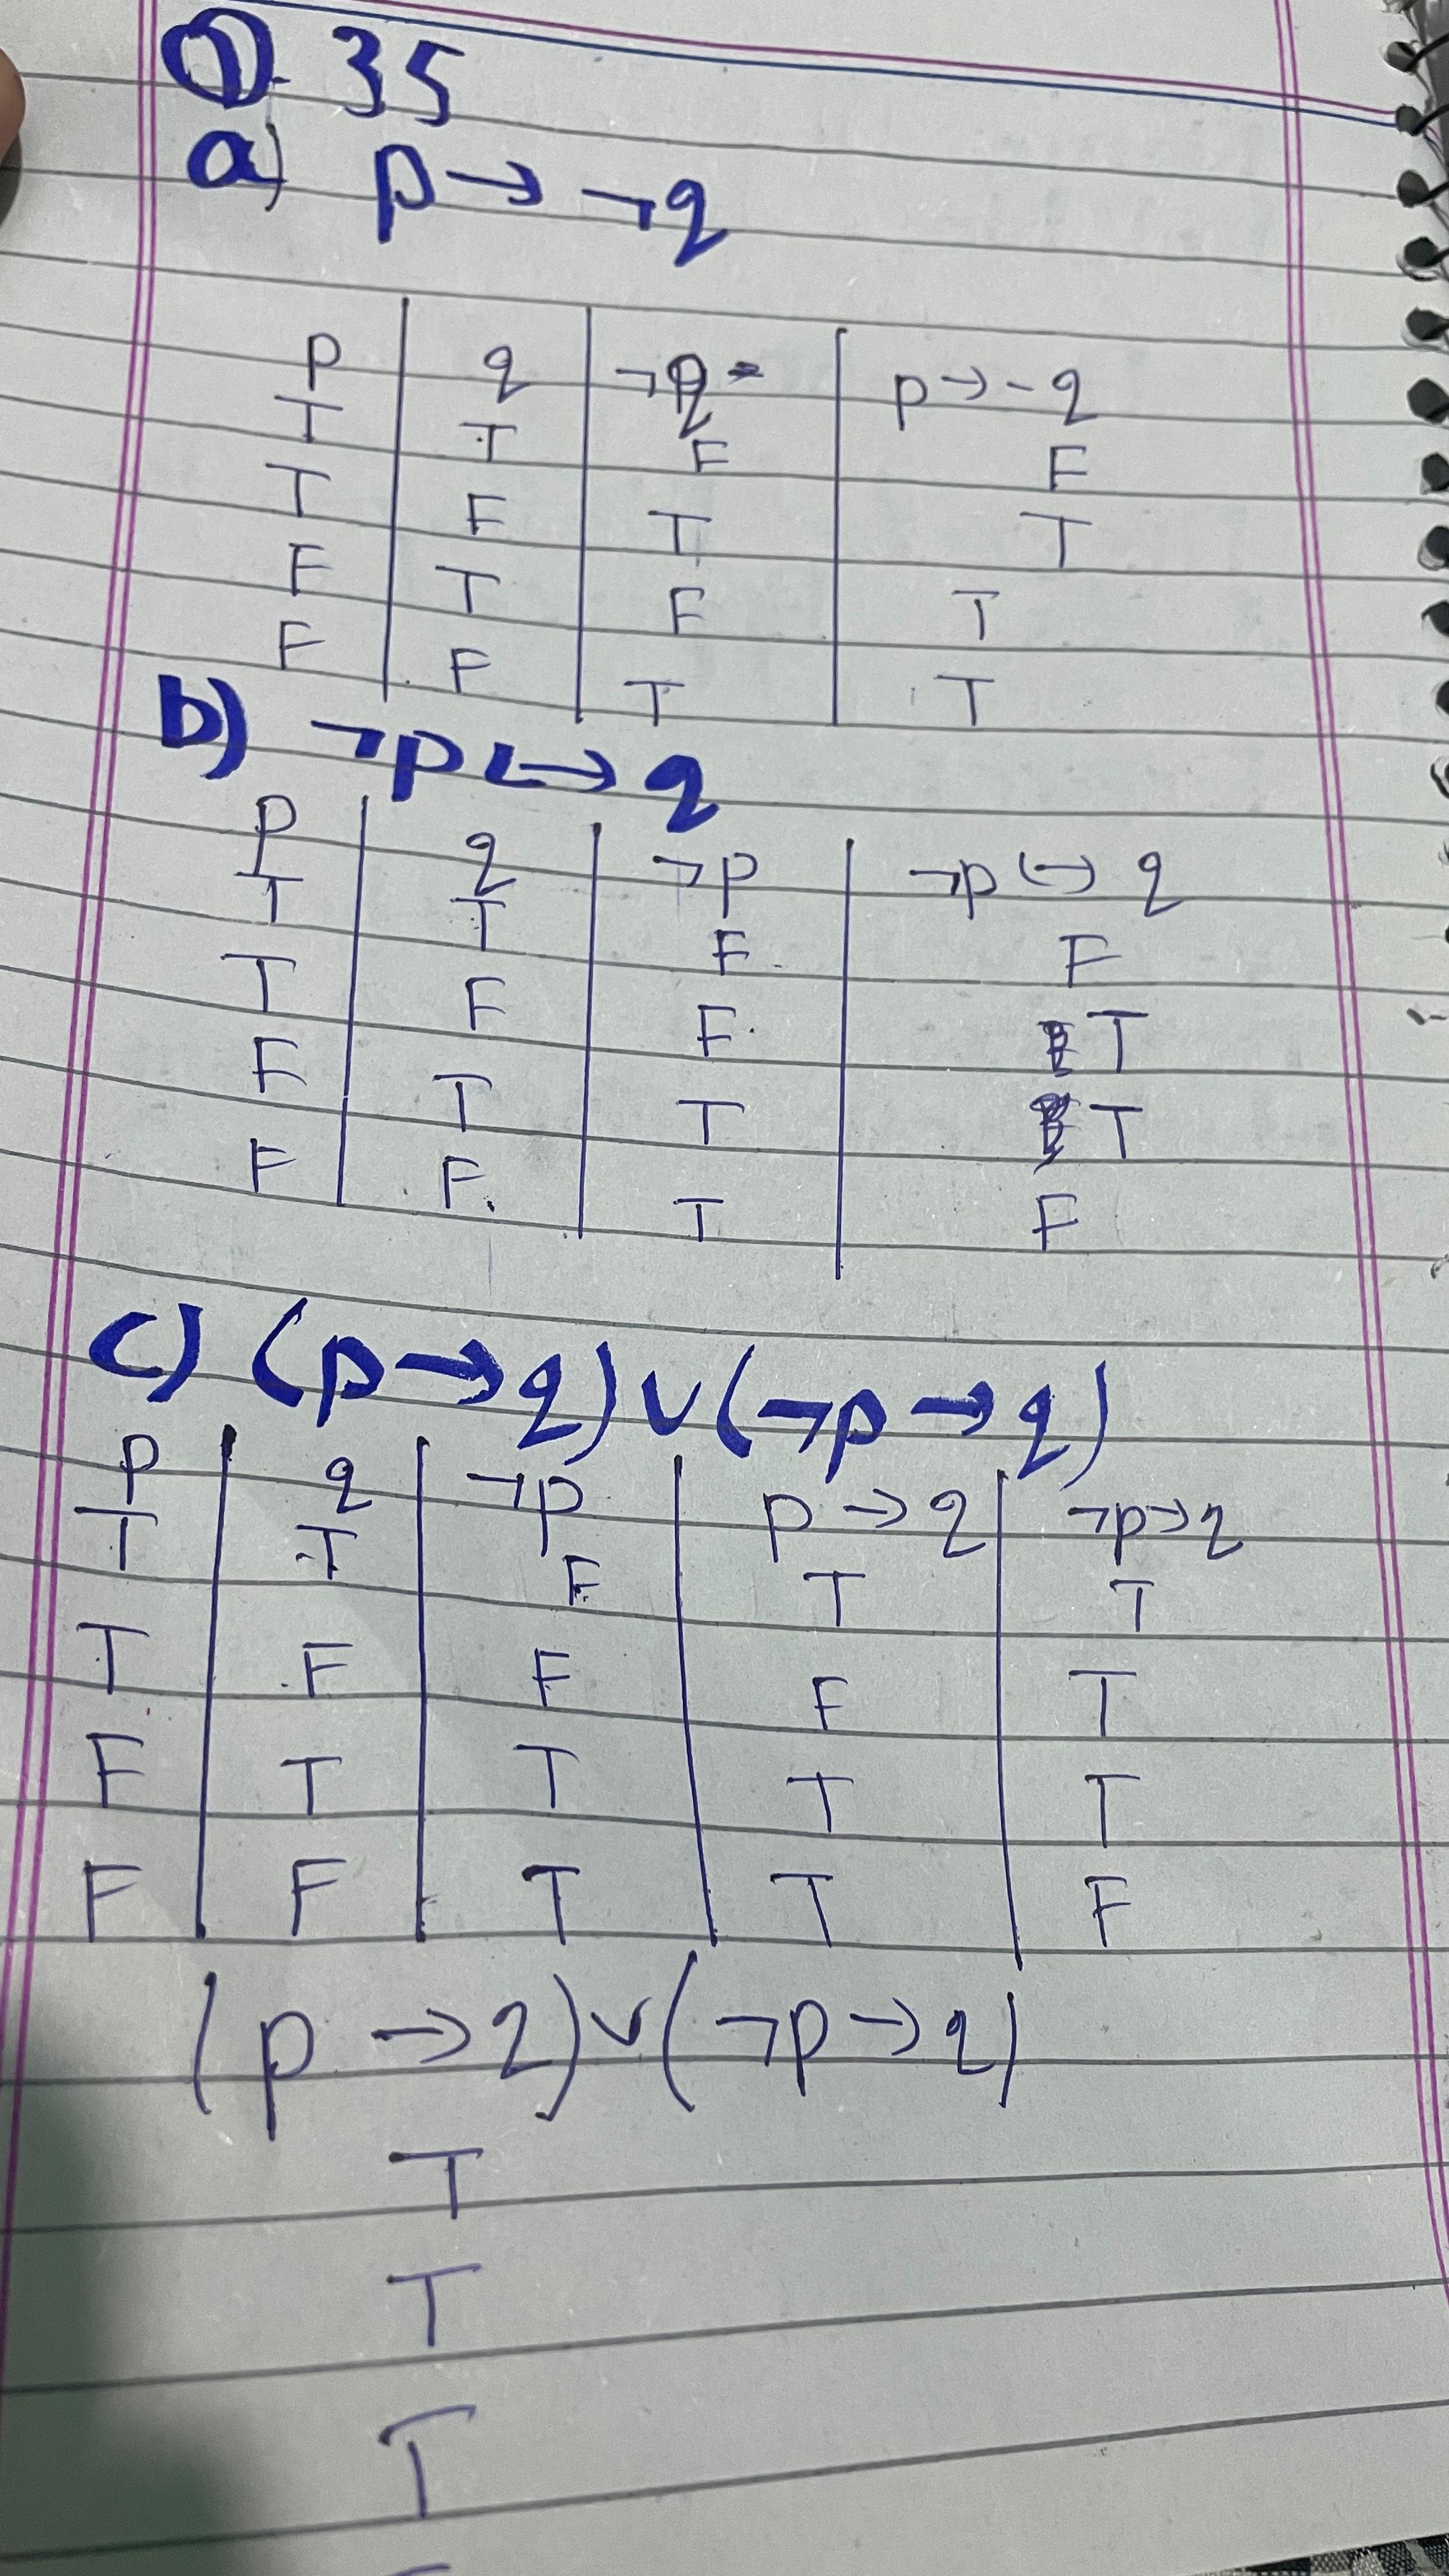 Q. 35
a) p → ¬q
p q ¬q p → - q
T T F F
T F T T
F T F T
F F T T
b) ¬p ↔ q
p q ¬p ¬p ↔ q
T T F F
T F F T
F T T T
F F T F
c) (p → q) ∨ (¬p → q)
p q ¬p p → q ¬p → q
T T F T T
T F F F T
F T T T T
F F T T F
(p → q) ∨ (¬p → q)
T
T
T